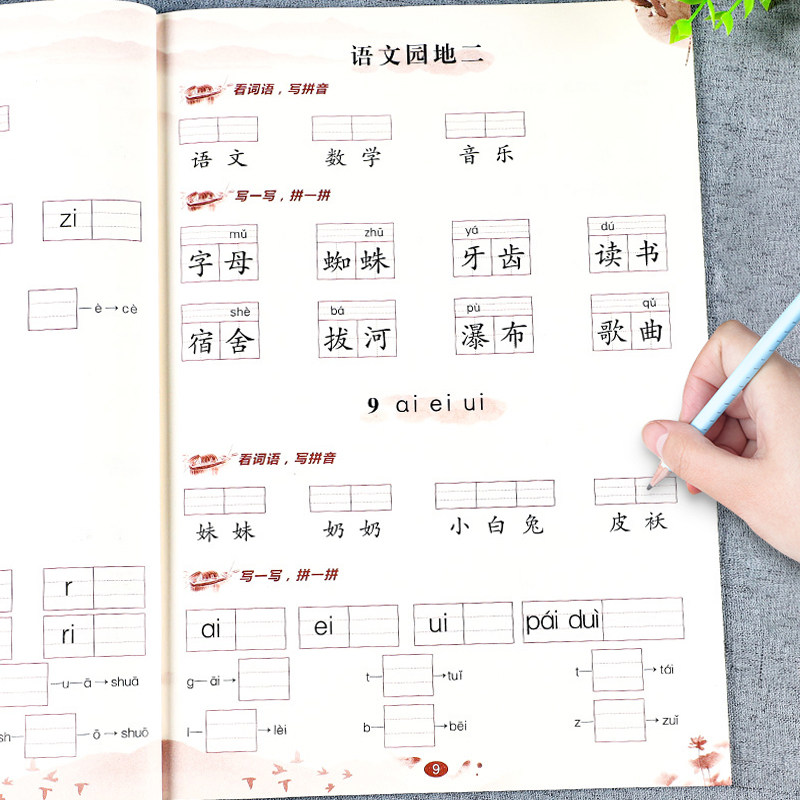 zi
è→cè
r
ri
u—ā→shuā
sh
ō→shuō
语文园地二
看词语，写拼音
语文 数学 音乐
写一写，拼一拼
mǔ zhū yá dú
字母 蜘蛛 牙齿 读书
shè bá pù qǔ
宿舍 拔河 瀑布 歌曲
9 ai ei ui
看词语，写拼音
妹妹 奶奶 小白兔 皮袄
写一写，拼一拼
ai ei ui pái duì
g—āi→ t— →tuǐ t— →tái
l— →lèi b— →bēi z— →zuǐ
9